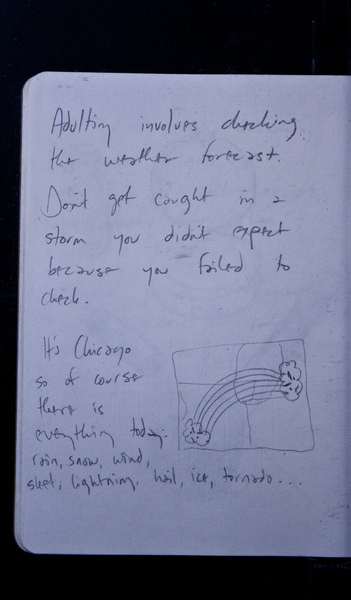 Adulting involves checking
the weather forecast.
Don't get caught in a
storm you didn't expect
because you failed to
check.
It's Chicago
so of course
there is
everything today:
rain, snow, wind,
sleet, lightning, hail, ice, tornado...